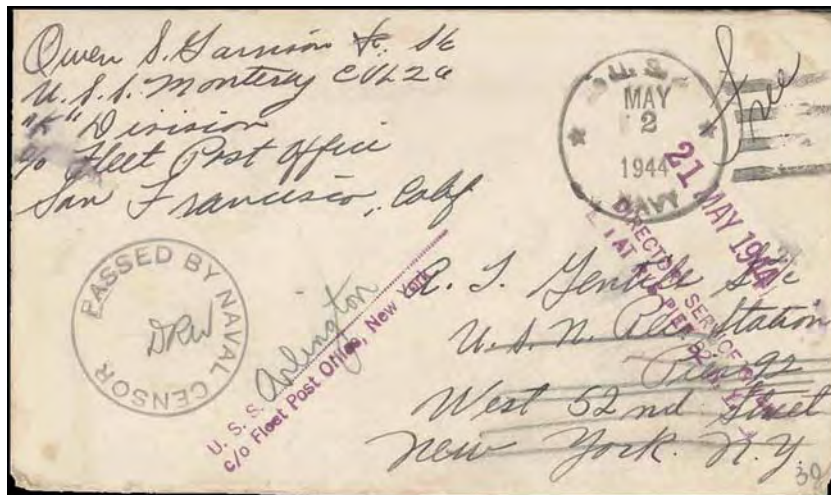 Owen S. Garrison Jr. S1c
U.S.S. Monterey CVL26
"K" Division
c/o Fleet Post Office
San Francisco, Calif
Free
U.S.
MAY
2
1944
NAVY
21 MAY 1944
DIRECTORY SERVICE
AT PIER 92
PASSED BY NAVAL CENSOR
DRW
U. S. S. Arlington
c/o Fleet Post Office, New York
R. T. Gentile
U.S.N. Rec Station
Pier 92
West 52nd Street
New York. N.Y.